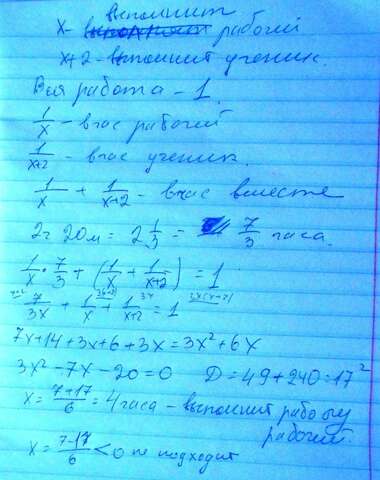 выполнит
x - рабочий
x+2 - выполнит ученик.
Вся работа - 1.
1/x - в час рабочий
1/(x+2) - в час ученик.
1/x + 1/(x+2) - в час вместе
2ч 20м = 2 1/3 = 7/3 часа.
1/x · 7/3 + (1/x + 1/(x+2)) = 1
7/3x + 1/x + 1/(x+2) = 1
7x+14+3x+6+3x=3x²+6x
3x²-7x-20=0 D=49+240=17²
x = (7+17)/6 = 4 часа - выполнит работу
рабочий.
x = (7-17)/6 < 0 не подходит